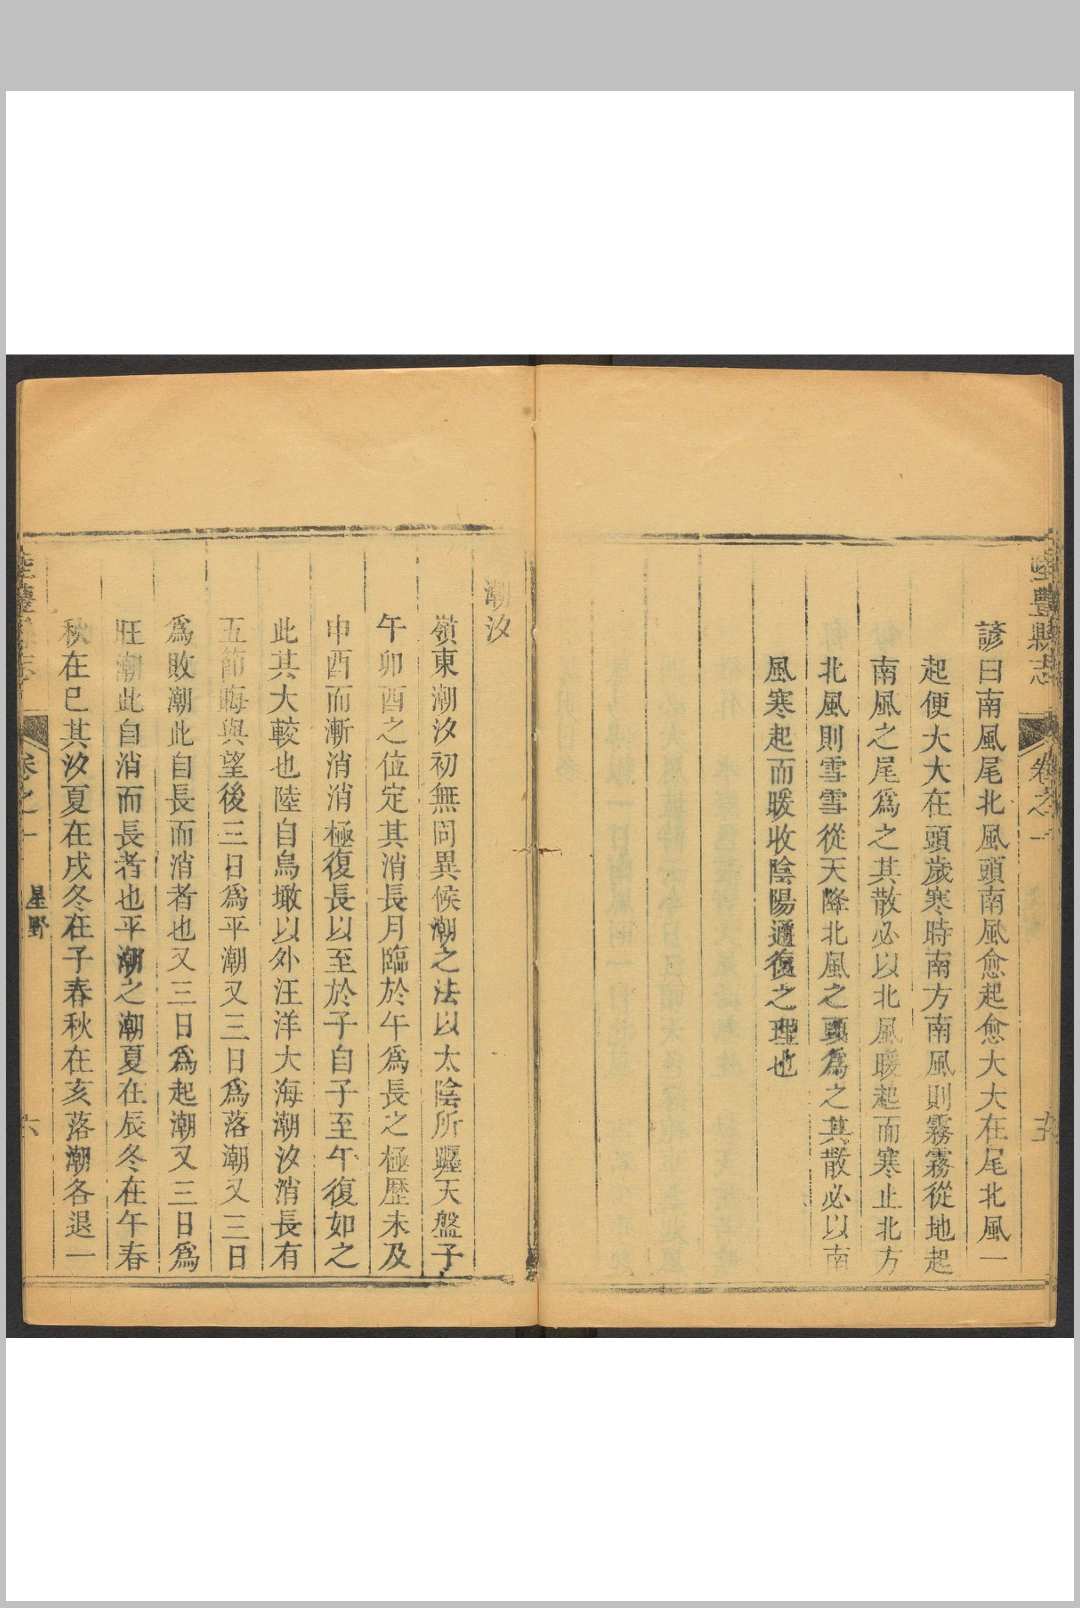 陸豐縣志
卷之一
諺曰南風尾北風頭南風愈起愈大大在尾北風一
起便大大在頭歲寒時南方南風則霧霧從地起
南風之尾爲之其散必以北風暖起而寒止北方
北風則雪雪從天降北風之頭爲之其散必以南
風寒起而暖收陰陽遞復之理也
潮汐
嶺東潮汐初無同異候潮之法以太陰所躔天盤子
午卯酉之位定其消長月臨於午爲長之極歷未及
申酉而漸消消極復長以至於子自子至午復如之
此其大較也陸自烏墩以外汪洋大海潮汐消長有
五節晦與望後三日爲平潮又三日爲落潮又三日
爲敗潮此自長而消者也又三日爲起潮又三日爲
旺潮此自消而長者也平潮之潮夏在辰冬在午春
秋在巳其汐夏在戌冬在子春秋在亥落潮各退一
卷之一
星野
六